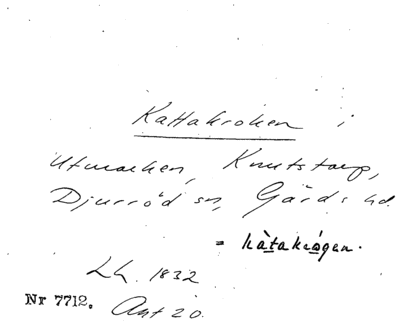 Kattakroken i
Utmarken, Knutstorp,
Djurröd sn, Gärds hd.
= kàtakrågen.
Lh. 1832
Nr 7712. Akt 20.